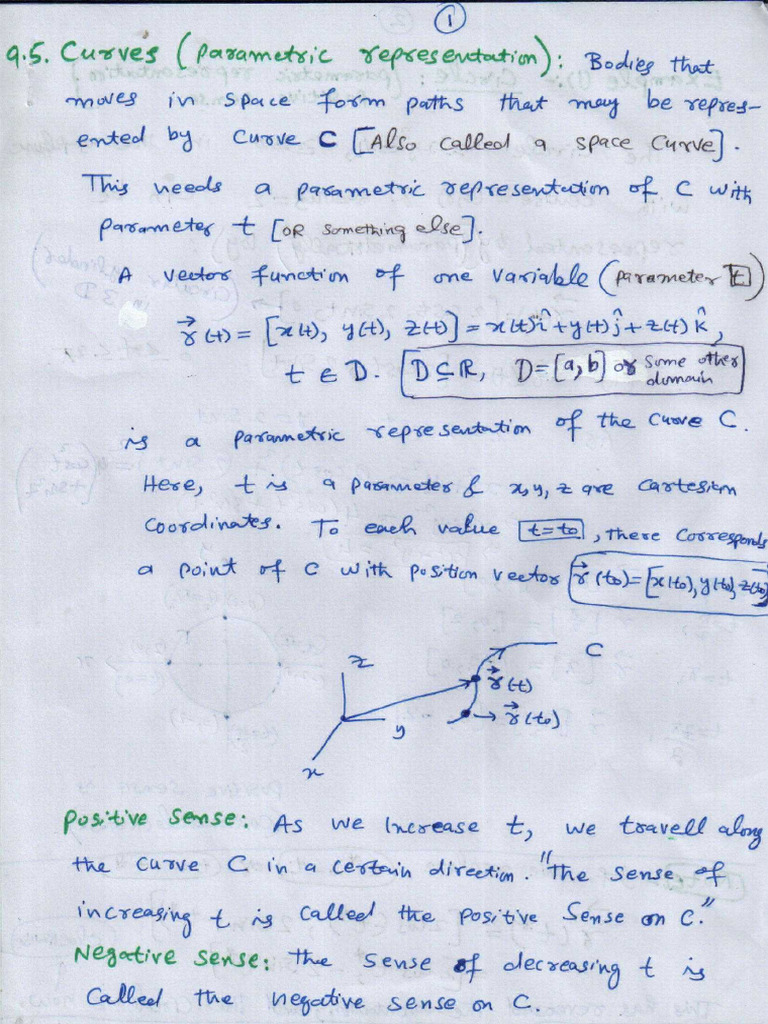 1
9.5. Curves (parametric representation): Bodies that
moves in space form paths that may be repres-
ented by curve C [Also called a space curve].
This needs a parametric representation of C with
parameter t [OR something else].
A vector function of one variable (parameter t)
r⃗(t) = [x(t), y(t), z(t)] = x(t)î + y(t)ĵ + z(t)k̂,
t ∈ D. [D ⊆ ℝ, D = [a, b] or some other domain
is a parametric representation of the curve C.
Here, t is a parameter & x, y, z are cartesian
coordinates. To each value t = t₀, there corresponds
a point of C with position vector r⃗(t₀) = [x(t₀), y(t₀), z(t₀)]
z
C
r⃗(t)
y
r⃗(t₀)
x
Positive sense: As we increase t, we travell along
the curve C in a certain direction. "The sense of
increasing t is called the positive sense on C."
Negative sense: The sense of decreasing t is
called the negative sense on C.